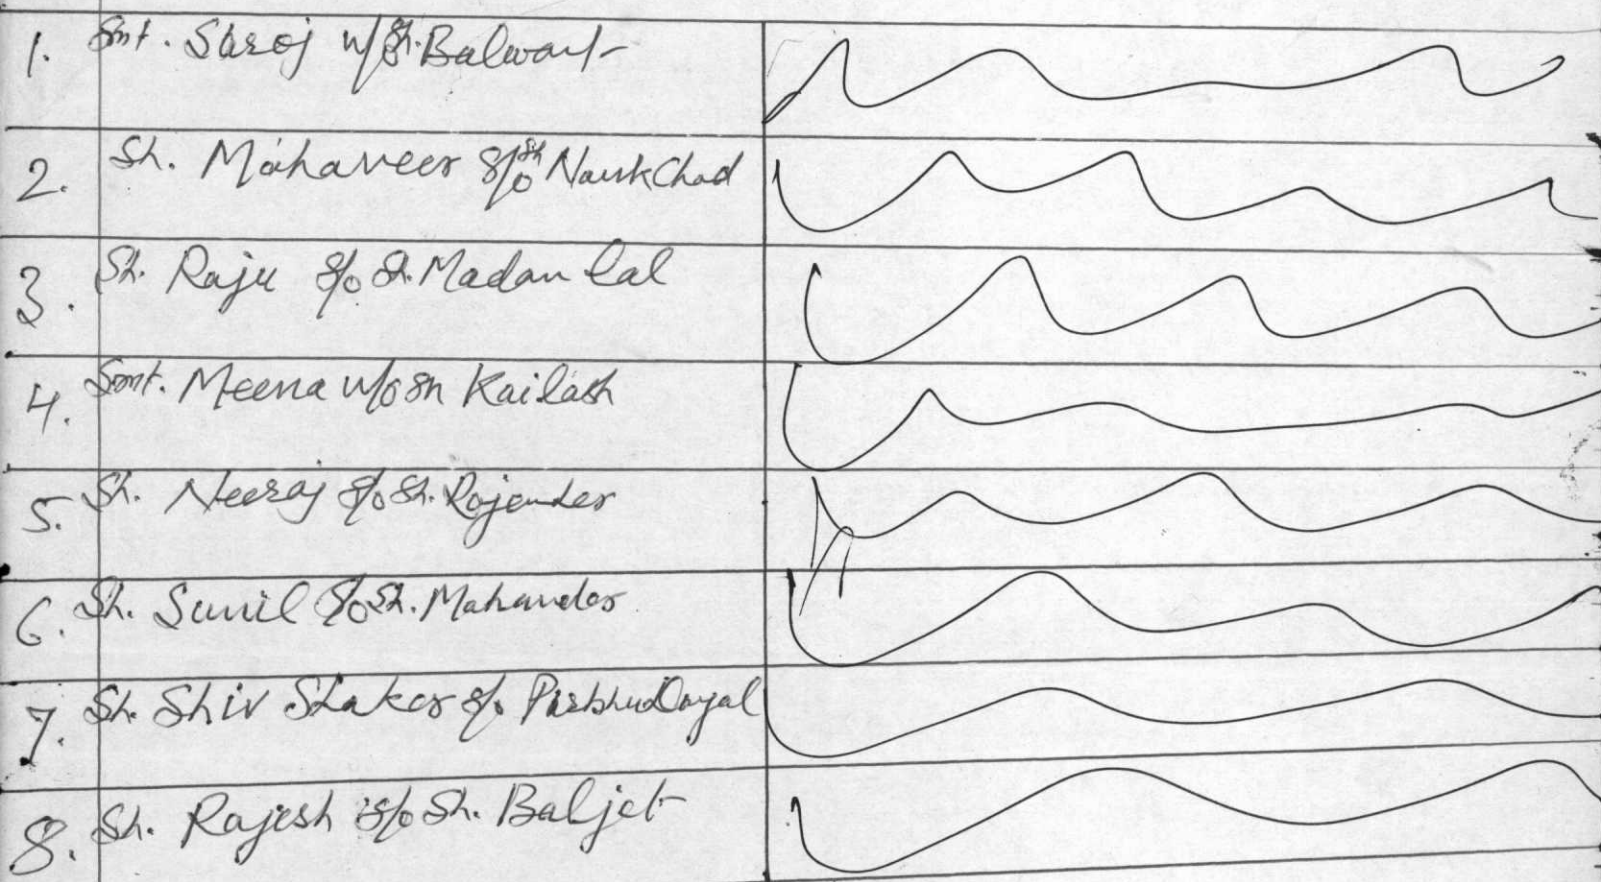 1. Smt. Saroj w/o Sh. Balwant
2. Sh. Mahaveer S/o Sh Nank Chad
3. Sh. Raju S/o Sh. Madan Lal
4. Smt. Meena w/o Sh Kailash
5. Sh. Neeraj S/o Sh. Rajender
6. Sh. Sunil S/o Sh. Mahander
7. Sh. Shiv Shaker S/o Pirbhu Dayal
8. Sh. Rajesh S/o Sh. Baljet